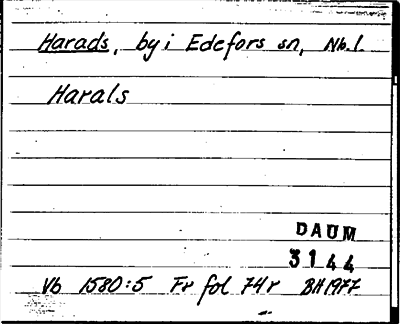 Harads, by i Edefors sn, Nb.l.
Harals
DAUM
3144
Vb 1580:5 Fr fol 74r BH1977